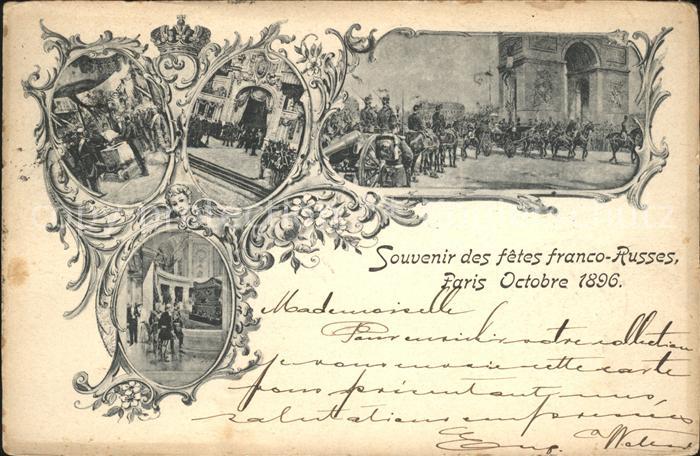 Souvenir des fêtes franco-Russes,
Paris Octobre 1896.
Mademoiselle
Pour enrichir votre collection
je vous envoie cette carte
vous présentant, mes
salutations empressées
Eug.